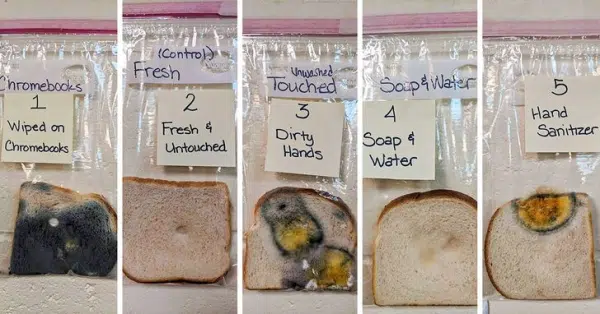 Chromebooks
1
Wiped on
Chromebooks
(Control)
Fresh
2
Fresh &
Untouched
Unwashed
Touched
3
Dirty
Hands
Soap & Water
4
Soap &
Water
5
Hand
Sanitzer